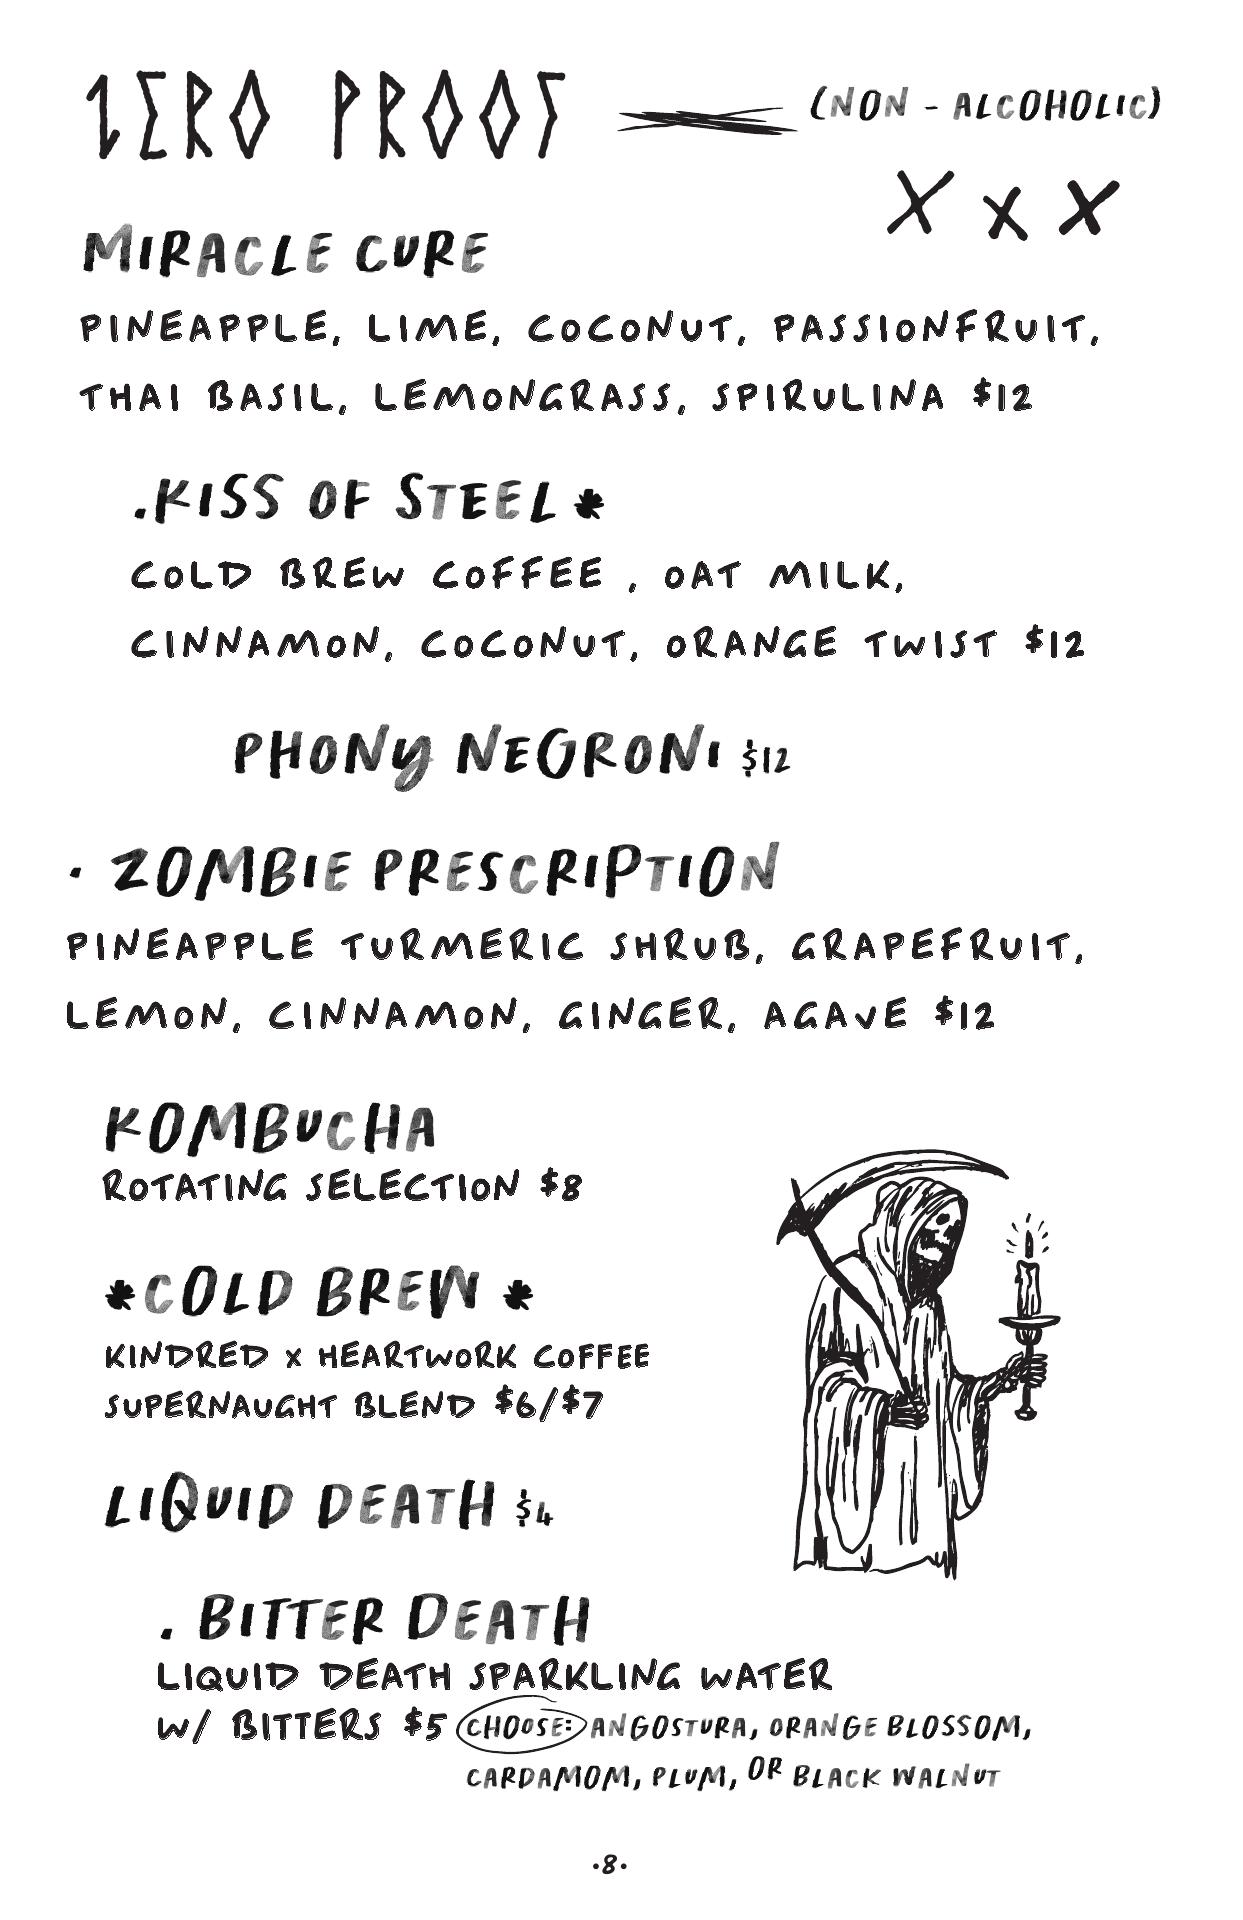 ZERO PROOF (NON - ALCOHOLIC)
X X X
MIRACLE CURE
PINEAPPLE, LIME, COCONUT, PASSIONFRUIT,
THAI BASIL, LEMONGRASS, SPIRULINA $12
.KISS OF STEEL *
COLD BREW COFFEE , OAT MILK,
CINNAMON, COCONUT, ORANGE TWIST $12
PHONY NEGRONI $12
· ZOMBIE PRESCRIPTION
PINEAPPLE TURMERIC SHRUB, GRAPEFRUIT,
LEMON, CINNAMON, GINGER, AGAVE $12
KOMBUCHA
ROTATING SELECTION $8
*COLD BREW *
KINDRED X HEARTWORK COFFEE
SUPERNAUGHT BLEND $6/$7
LIQUID DEATH $4
. BITTER DEATH
LIQUID DEATH SPARKLING WATER
W/ BITTERS $5 CHOOSE: ANGOSTURA, ORANGE BLOSSOM,
CARDAMOM, PLUM, OR BLACK WALNUT
·8·